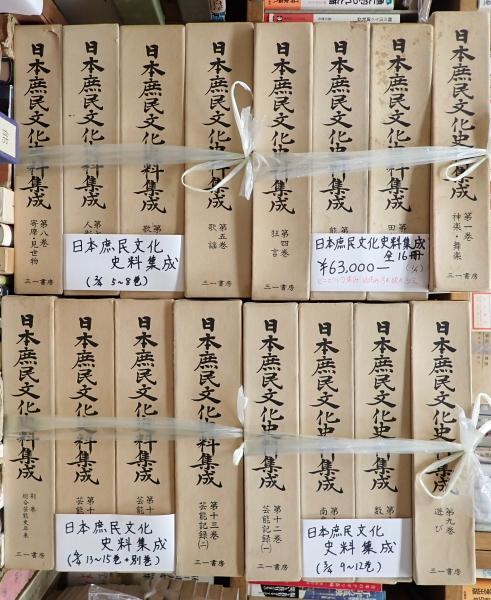 日本庶民文化史料集成
第八巻
寄席・見世物
三一書房
日本庶民文化史料集成
人
日本庶民文化史料集成
歌
日本庶民文化史料集成
第五巻
歌謡
三一書房
日本庶民文化史料集成
第四巻
狂言
三一書房
日本庶民文化史料集成
能
日本庶民文化史料集成
田
日本庶民文化史料集成
第一巻
神楽・舞楽
三一書房
日本庶民文化
史料集成
(2/4 5~8巻)
日本庶民文化史料集成
全16冊
¥63,000―
(1/4)
日本庶民文化史料集成
別巻
総合芸能史年表
三一書房
日本庶民文化史料集成
第十
芸能
日本庶民文化史料集成
第十
芸能
日本庶民文化史料集成
第十三巻
芸能記録(二)
三一書房
日本庶民文化史料集成
第十二巻
芸能記録(一)
三一書房
日本庶民文化史料集成
第十
南
日本庶民文化史料集成
第十
数
日本庶民文化史料集成
第九巻
遊び
三一書房
日本庶民文化
史料集成
(4/4 13~15巻+別巻)
日本庶民文化
史料集成
(3/4 9~12巻)